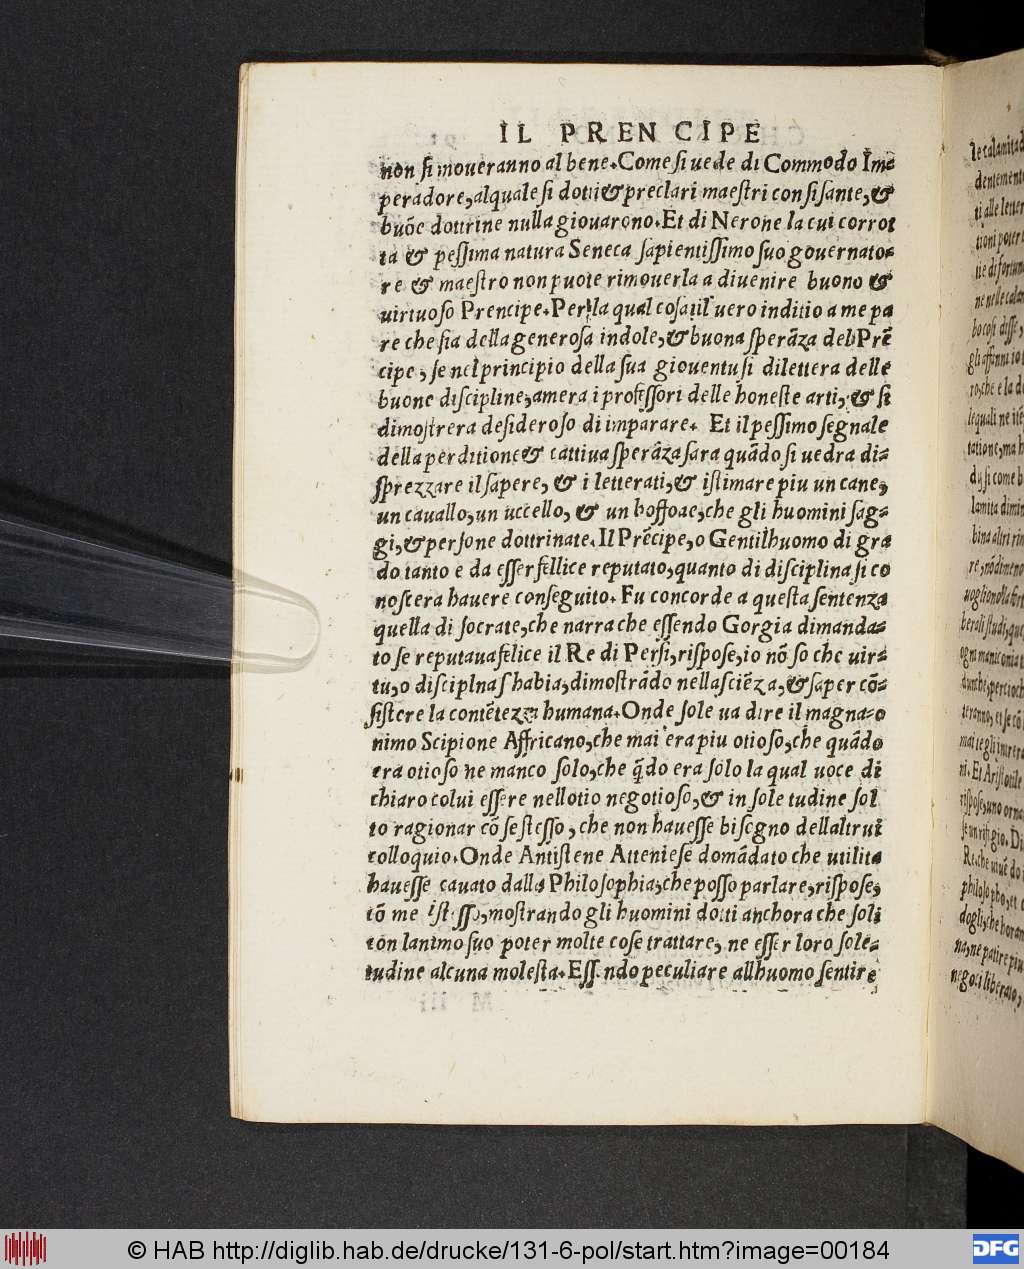 IL PRENCIPE
non si moveranno al bene. Come si vede di Commodo Im=
peradore, alquale si dotti & preclari maestri con si sante, &
buōe dottrine nulla giouarono. Et di Nerone la cui corrot
ta & pessima natura Seneca sapientissimo suo gouernato=
re & maestro non puote rimouerla a diuenire buono &
uirtuoso Prencipe. Per la qual cosa il uero inditio a me pa
re che sia della generosa indole, & buona sperāza del Prē
cipe, se nel principio della sua giouentu si dilettera delle
buone discipline, amera i professori delle honeste arti, & si
dimostrera desideroso di imparare. Et il pessimo segnale
della perditione & cattiua sperāza sara quādo si uedra di=
sprezzare il sapere, & i letterati, & istimare piu un cane,
un cauallo, un uccello, & un boffoae, che gli huomini sag=
gi, & persone dottrinate. Il Prēcipe, o Gentilhuomo di gra
do tanto e da esser fellice reputato, quanto di disciplina si co
noscera hauere conseguito. Fu concorde a questa sentenza
quella di Socrate, che narra che essendo Gorgia dimanda=
to se reputaua felice il Re di Persi, rispose, io nō so che uir=
tu, o disciplna s habia, dimostrādo nella sciēza, & saper cō=
sistere la contētezza humana. Onde sole ua dire il magna=o
nimo Scipione Affricano, che mai era piu otioso, che quādo
era otioso ne manco solo, che q̄do era solo la qual uoce di
chiaro colui essere nell otio negotioso, & in sole tudine sol
to ragionar cō se stesso, che non hauesse bisegno dellaltrui
colloquio. Onde Antistene Atteniese domādato che utilita
hauesse cauato dalla Philosophia, che posso parlare, rispose,
cō me istesso, mostrando gli huomini dotti anchora che soli
con lanimo suo poter molte cose trattare, ne esser loro sole=
tudine alcuna molesta. Essendo peculiare allhuomo sentire
© HAB http://diglib.hab.de/drucke/131-6-pol/start.htm?image=00184
DFG